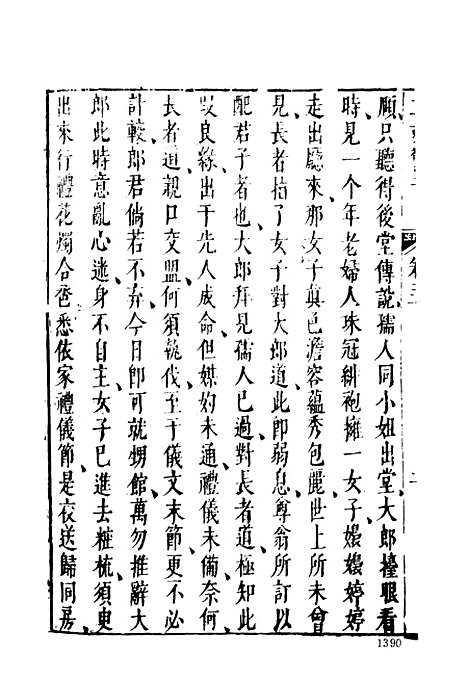 願只聽得後堂傳說孺人同小姐出堂大郎擡眼看
時見一个年老婦人珠冠緋袍擁一女子嬝嬝婷婷
走出廳來那女子真色澹容蘊秀包麗世上所未曾
見長者指了女子對大郎道此即弱息尊翁所訂以
配君子者也大郎拜見孺人已過對長者道極知此
叚良緣出于先人成命但媒妁未通禮儀未備奈何
長者道親口交盟何須執伐至于儀文末節更不必
計較郎君倘若不弃今日卽可就甥館萬勿推辭大
郎此時意亂心迷身不自主女子已進去粧梳須臾
出來行禮花燭合卺悉依家禮儀節是夜送歸同房
1390